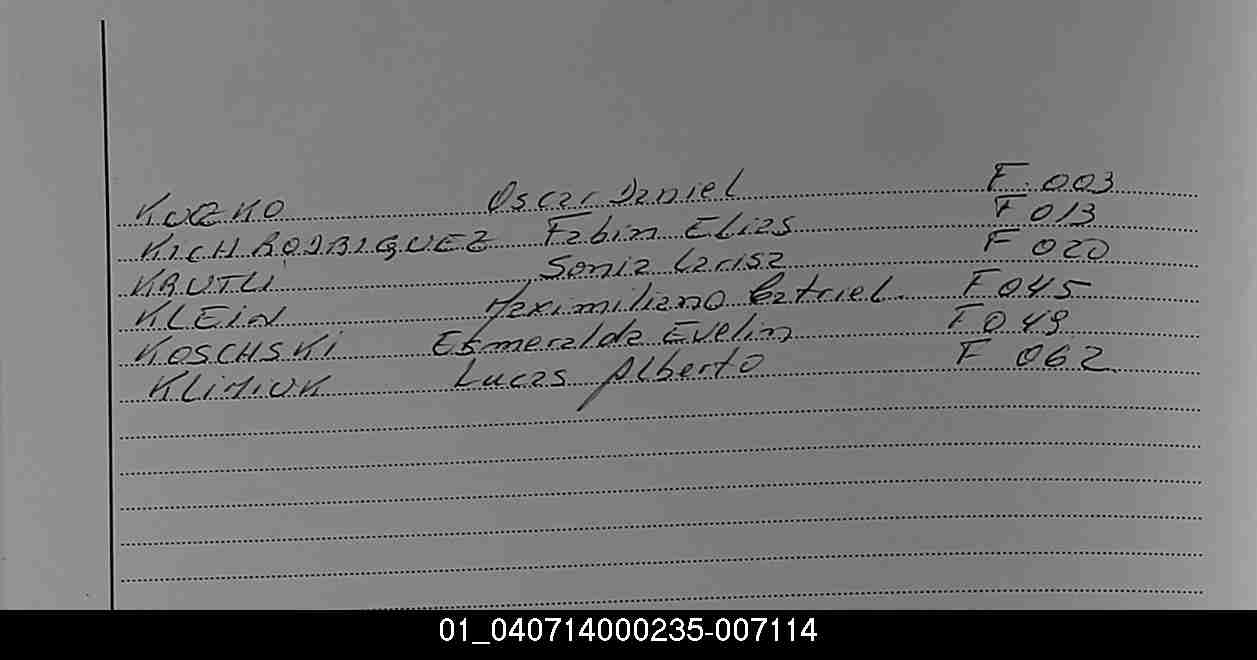 KUZKO Oscar Daniel F. 003
KICH RODRIGUEZ Fabin Elias F 013
KRUTLI Sonia Larisa F 020
KLEIN Maximiliano Gatriel F 045
KOSCHSKI Esmeralda Evelin F 049
KLIMIUK Lucas Alberto F 062
01_040714000235-007114